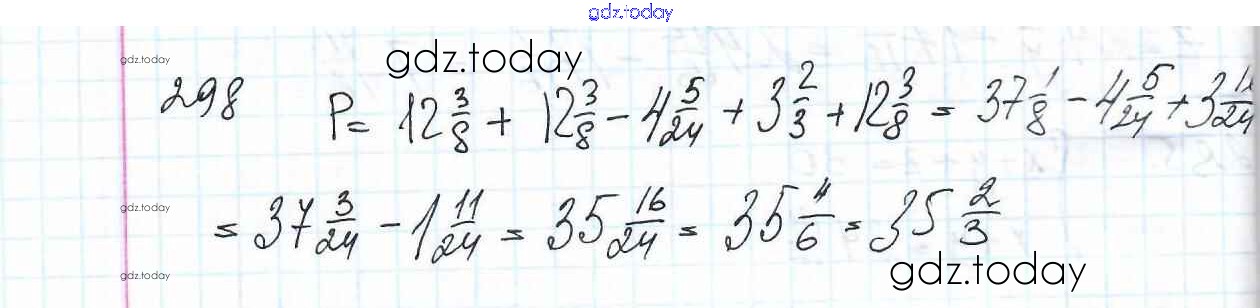 gdz.today
gdz.today
gdz.today
298 P = 12 3/8 + 12 3/8 - 4 5/24 + 3 2/3 + 12 3/8 = 37 1/8 - 4 5/24 + 3
gdz.today
= 37 3/24 - 1 11/24 = 35 16/24 = 35 4/6 = 35 2/3
gdz.today
gdz.today